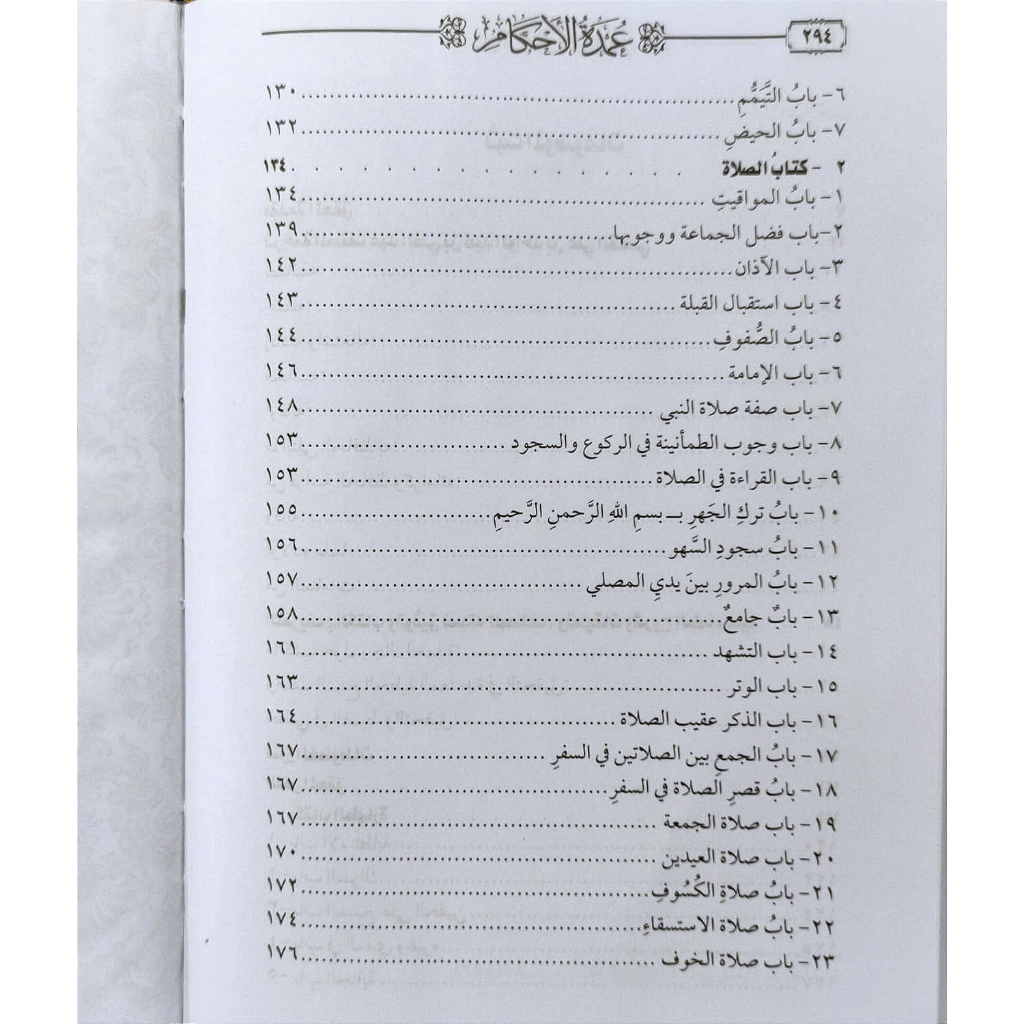 ٢٩٤ عُمْدَةُ الأَحْكَامِ
٦- بابُ التَّيَمُّمِ..........١٣٠
٧- بابُ الحيضِ..........١٣٢
٢ - كتابُ الصلاة . . . . . . . . . . ١٣٤
١- بابُ المواقيتِ ..........١٣٤
٢-باب فضل الجماعة ووجوبها..........١٣٩
٣- باب الآذان..........١٤٢
٤- باب استقبال القبلة ..........١٤٣
٥- بابُ الصُّفوفِ..........١٤٤
٦- باب الإمامة ..........١٤٦
٧- باب صفة صلاة النبي ..........١٤٨
٨- باب وجوب الطمأنينة في الركوع والسجود ..........١٥٣
٩- باب القراءة في الصلاة..........١٥٣
١٠- بابُ تركِ الجَهرِ بـ بسمِ اللهِ الرَّحمنِ الرَّحيمِ..........١٥٥
١١- بابُ سجودِ السَّهو..........١٥٦
١٢- بابُ المرورِ بينَ يديِ المصلي ..........١٥٧
١٣- بابٌ جامعٌ..........١٥٨
١٤- باب التشهد ..........١٦١
١٥- باب الوتر ..........١٦٣
١٦- باب الذكر عقيب الصلاة ..........١٦٤
١٧- بابُ الجمعِ بين الصلاتين في السفرِ ..........١٦٧
١٨- بابُ قصرِ الصلاة في السفرِ..........١٦٧
١٩- باب صلاة الجمعة ..........١٦٧
٢٠- باب صلاة العيدين ..........١٧٠
٢١- بابُ صلاةِ الكُسُوفِ..........١٧٢
٢٢- بابُ صلاة الاستسقاءِ..........١٧٤
٢٣- باب صلاة الخوف ..........١٧٦